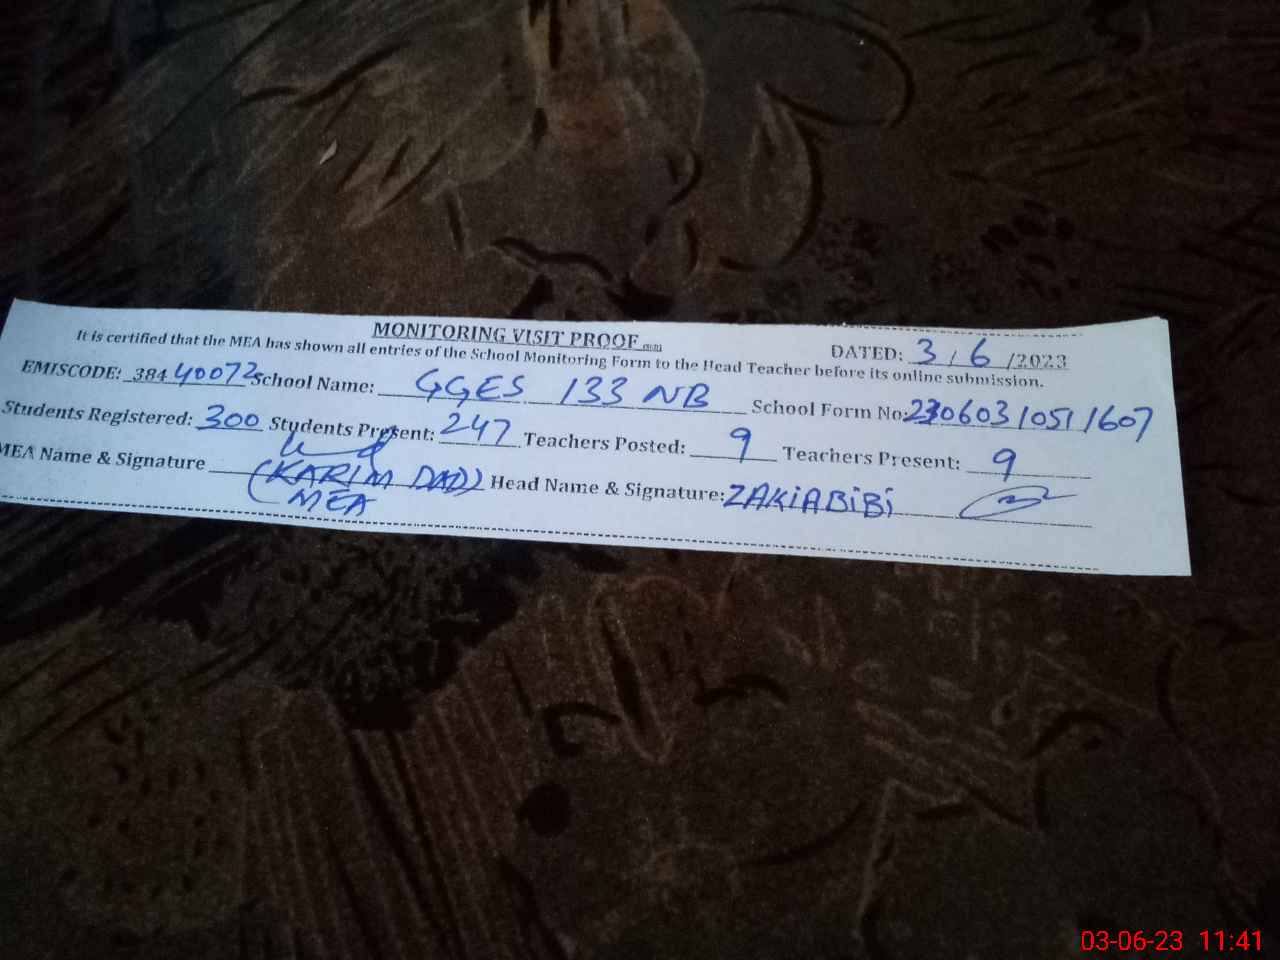 MONITORING VISIT PROOF
DATED: 3/6/2023
It is certified that the MEA has shown all entries of the School Monitoring Form to the Head Teacher before its online submission.
EMISCODE: 38440072 School Name: GGES 133 NB School Form No: 23060310511607
Students Registered: 300 Students Present: 247 Teachers Posted: 9 Teachers Present: 9
MEA Name & Signature (KARIM DAD) Head Name & Signature: ZAKIABIBI
MEA
03-06-23 11:41